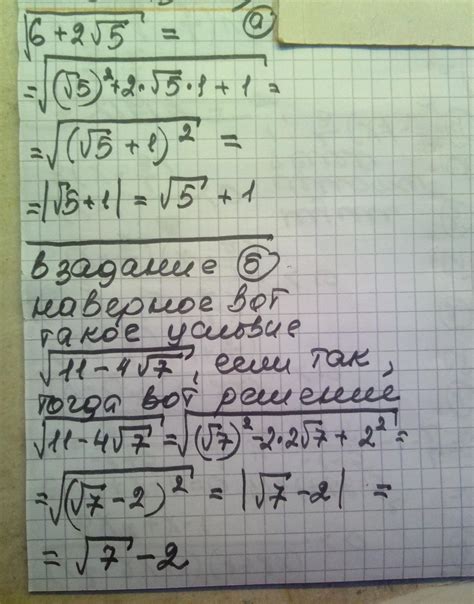 √(6 + 2√5) = а
= √((√5)² + 2·√5·1 + 1) =
= √((√5 + 1)²) =
= |√5 + 1| = √5 + 1
в задание б
наверное вот
такое условие
√(11 - 4√7), если так,
тогда вот решение
√(11 - 4√7) = √((√7)² - 2·2√7 + 2²) =
= √((√7 - 2)²) = |√7 - 2| =
= √7 - 2